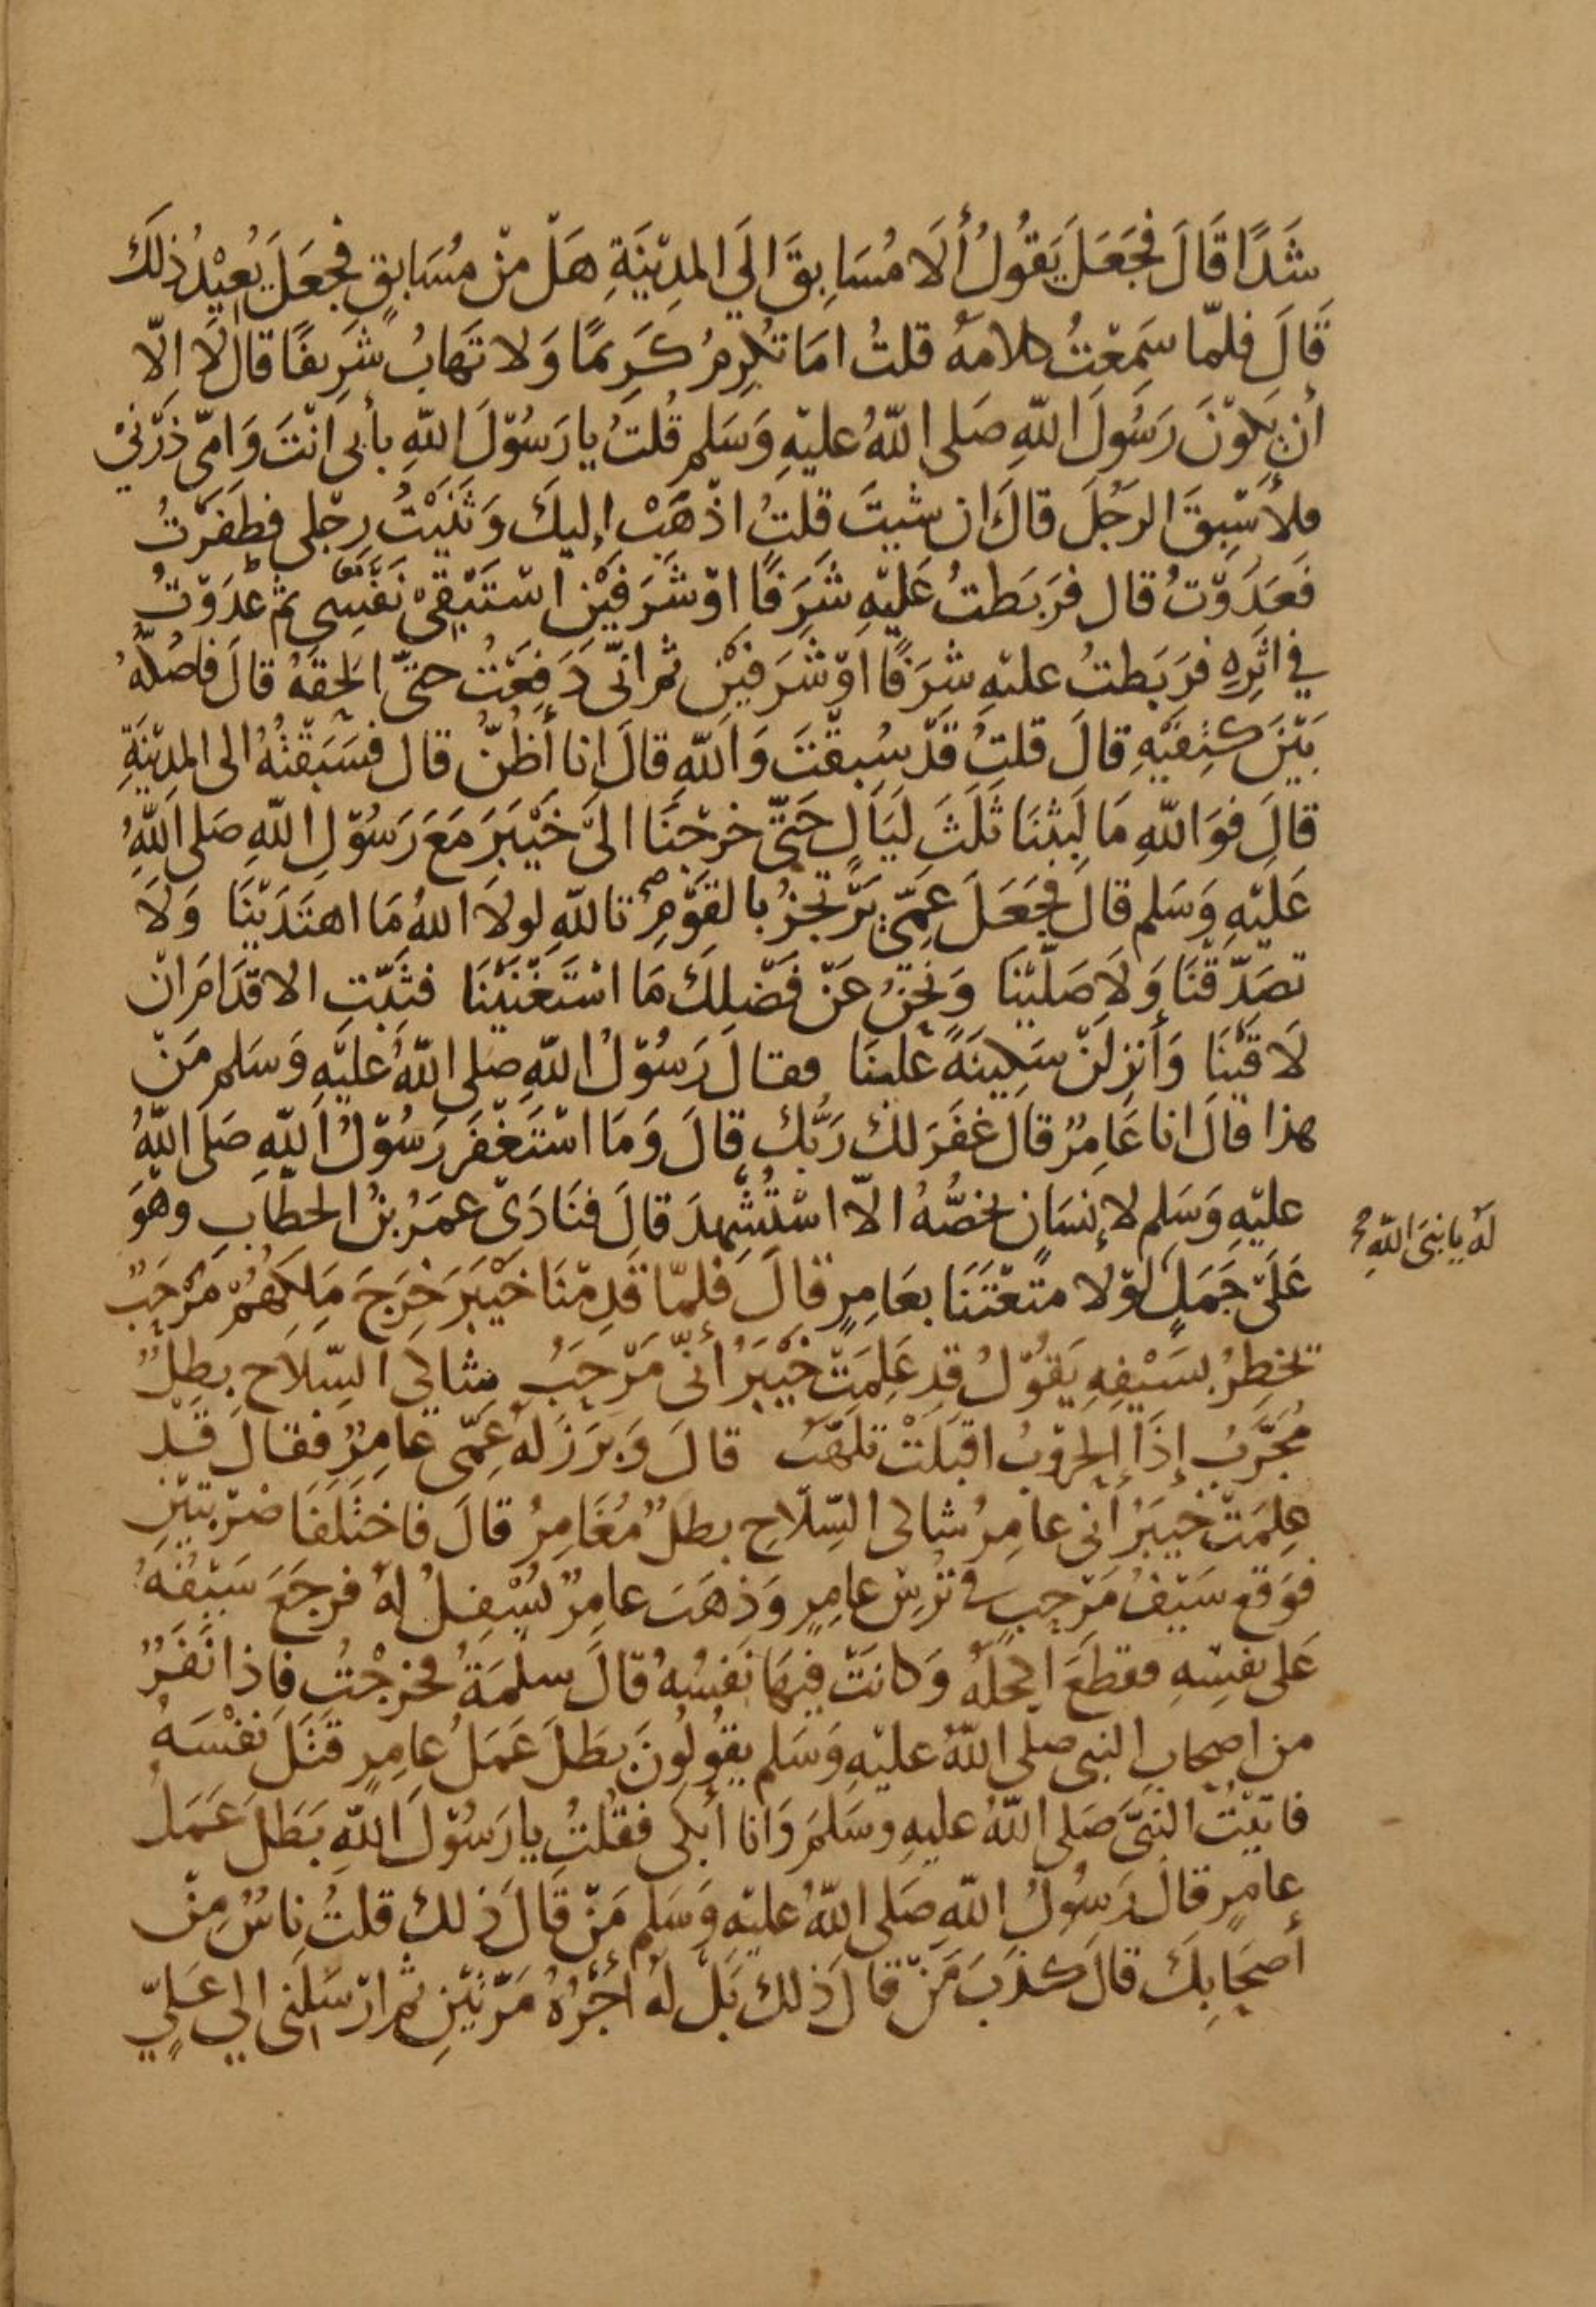 شَدًّا قَالَ فَجَعَلَ يَقُولُ أَلَا مُسَابِقَ الَي المدِيْنَةِ هَلْ مِنْ مُسَابِقٍ فجعَلَ يُعِيْدُ ذٰلكَ
قَالَ فلمّا سَمِعْتُ كلامَهُ قلتُ امَا تُكرِمُ كَرِيمًا وَلا تَهَابُ شَرِيفًا قالَ لَا اِلّا
أن يَكوْنَ رَسُولَ اللّهِ صَلى اللّهُ عليْهِ وَسَلم قُلتُ يا رَسُوْلَ اللّهِ بأبى انْتَ وَامّى ذَرْنيْ
فلأسْبِقَ الرجُلَ قالَ ان شيتَ قلتُ اذْهَبْ إليكَ وَثَنَيْتُ رِجْلى فطَفَرْتُ
فَعَدَوْتُ قال فرَبَطتُ عَليْهِ شَرَفًا اوْ شَرَفَيْنِ اسْتَبْقِيْ نَفَسِى ثم عَدَوْتُ
في اثَرِهِ فرَبَطتُ عليْهِ شَرَفًا اَوْ شَرَفَيْنِ ثم انّى رَفَعْتُ حتىّ الحَقَهُ قالَ فاصُكّهُ
بَيْنَ كتِفَيْهِ قالَ قلتُ قَدْ سُبِقْتَ وَاللّهِ قالَ انا أظُنُّ قال فسَبَقْتُهُ الى المدِيْنَةِ
قالَ فوَاللّهِ مَا لَبِثْنَا ثَلٰثَ لَيَالٍ حَتىّ خرجْنَا الىَ خَيْبَرَ مَعَ رَسُوْلِ اللّهِ صَلى اللّهُ
عَليْهِ وَسَلم قالَ فَجَعَلَ عمِّىْ يَرْتجِزُ بالقَوْمِ تاللّهِ لولَا اللهُ مَا اهتَدَيْنَا وَلَا
تصَدّقْنَا وَلَا صَلّيْنَا وَنحْنُ عَنْ فَضْلِكَ مَا اسْتَغْنَيْنَا فثَبّتِ الاقْدَامَ انْ
لَاقيْنَا وَأنزِلنْ سَكِينَةً علَينَا فقالَ رَسُوْلُ اللّهِ صَلى اللّهُ عليْهِ وَسَلم مَنْ
هذا قالَ انا عَامِرٌ قالَ غفَرَ لكَ رَبُّكَ قالَ وَمَا اسْتَغْفَرَ رَسُوْلُ اللّهِ صَلى اللّهُ
عليْهِ وَسَلم لإنسَانٍ يخصُّهُ الّا اسْتُشْهِدَ قالَ فنَادَىْ عمَرُ بنُ الخطّابِ وهْوَ
لهُ يا نبىَ اللّهِ
عَلىْ جَمَلٍ لوْلا متّعْتَنَا بعَامِرٍ قالَ فلمّا قَدِمْنَا خَيْبَرَ خَرجَ مَلِكهُمْ مَرْحَبٌ
تخطِرُ بسَيْفِهِ يَقُوْلُ قد عَلِمَتْ خَيْبَرُ أنّى مَرْحَبُ شالى السِّلاحِ بطلٌ
مُجَرَّبُ إذَا الحُرُوْبُ اقبَلتْ تلهّبُ قالَ وَبَرَزَ لهُ عمِّى عامِرٌ فقالَ قدْ
علِمَتْ خيبَرُ أنى عامِرُ شالى السِّلاحِ بطلٌ مُغَامِرُ قالَ فاختَلَفَا ضرْبَتيْنِ
فوَقعَ سَيْفُ مَرْحبٍ فى تُرْسِ عامِرٍ وَذهَبَ عامِرٌ يُسْفِلُ لهُ فرجَعَ سَيْفُهُ
عَلى نفسِهِ فقطعَ اكحلهُ وَكانَتْ فيهَا نَفسُهُ قالَ سلمَةُ فخرجْتُ فإذا نَفَرٌ
من اصحابِ النبى صلى اللّهُ عليْهِ وَسَلم يقُولُونَ بطَلَ عَمَلُ عامِرٍ قتَلَ نفْسَهُ
فاتيْتُ النبىَّ صَلى اللّهُ عليهِ وسَلمَ وَانا أبكى فقُلتُ يا رَسُوْلَ اللّهِ بَطَلَ عَمَلُ
عامِرٍ قالَ رَسُوْلُ اللّهِ صَلى اللّهُ عليْهِ وَسَلم مَنْ قالَ ذلكَ قلتُ ناسٌ مِنْ
أصحَابِكَ قالَ كذَبَ مَنْ قالَ ذلكَ بَلْ لهُ اجْرُهُ مَرّتَيْنِ ثم ارْسَلنى الي عَليٍّ